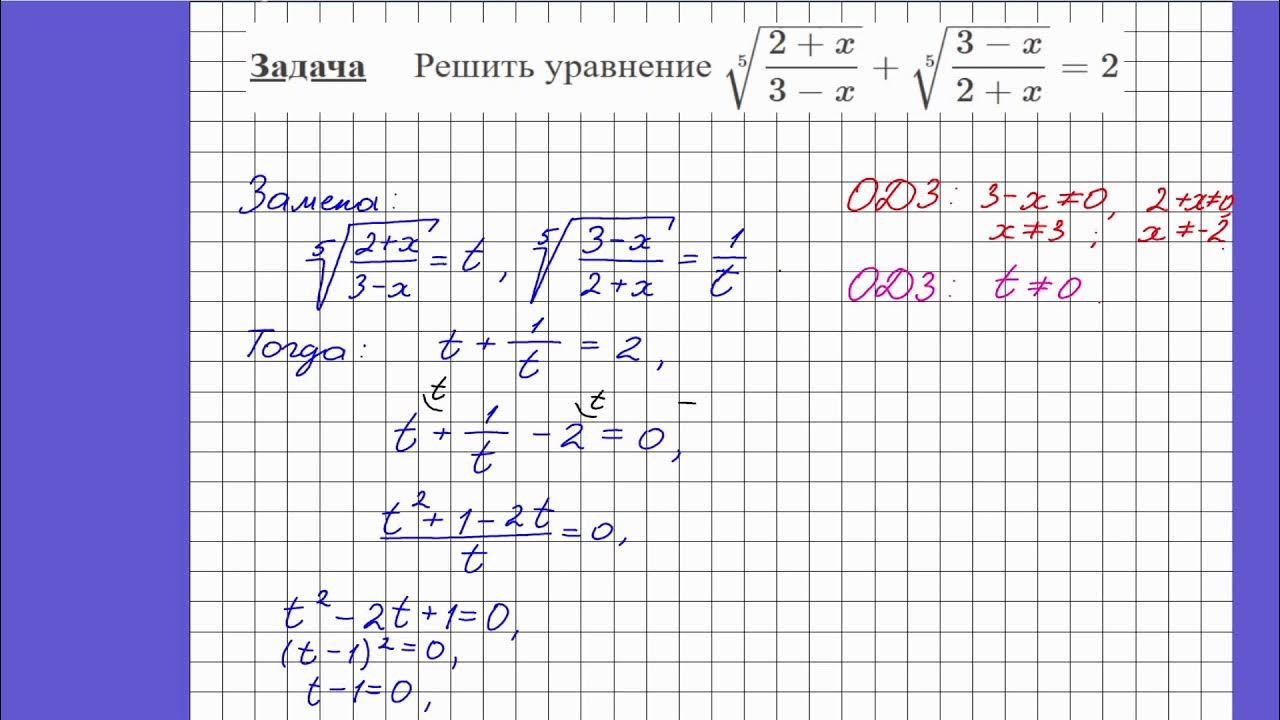 Задача Решить уравнение ⁵√((2 + x)/(3 − x)) + ⁵√((3 − x)/(2 + x)) = 2
Замена:
⁵√((2+x)/(3−x)) = t, ⁵√((3−x)/(2+x)) = 1/t.
ОДЗ: 3−x≠0, 2+x≠0,
x≠3; x≠−2.
ОДЗ: t≠0.
Тогда: t + 1/t = 2,
t t −
t + 1/t − 2 = 0,
(t² + 1 − 2t)/t = 0,
t² − 2t + 1 = 0,
(t − 1)² = 0,
t − 1 = 0,